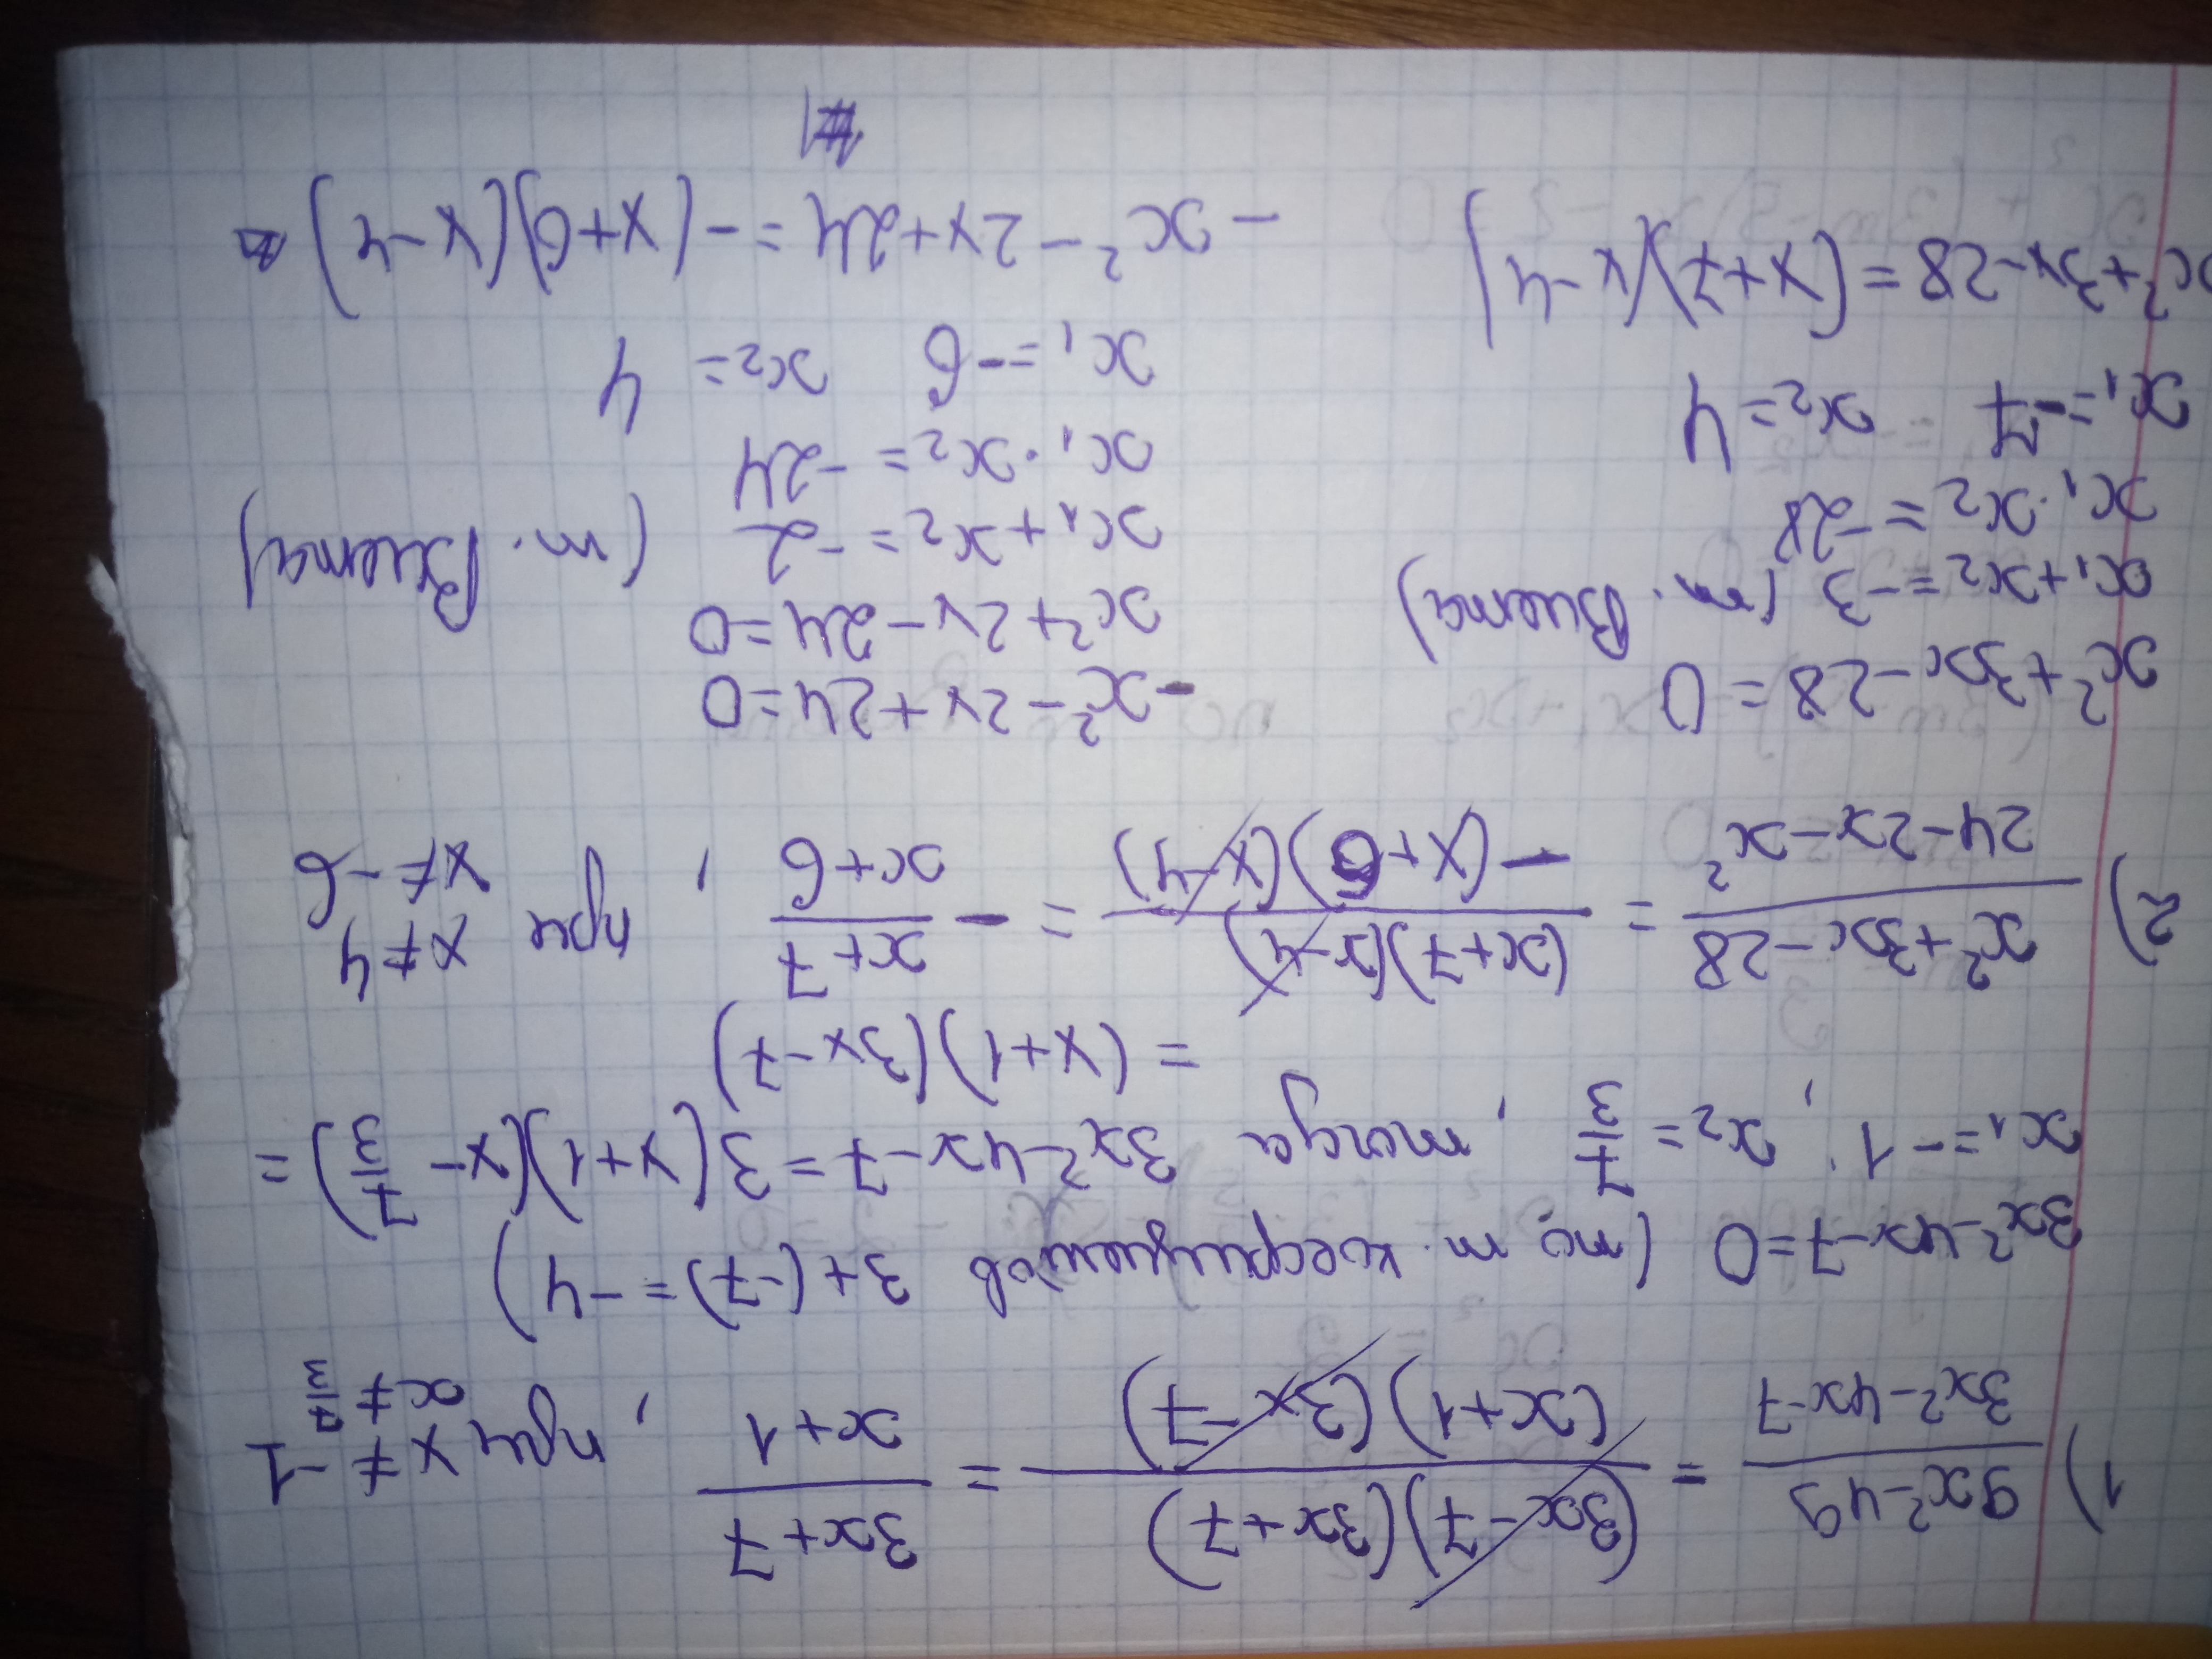 1) (9x²-49)/(3x²-4x-7) = ((3x-7)(3x+7))/((x+1)(3x-7)) = (3x+7)/(x+1), при x≠-1 x≠7/3
3x²-4x-7=0 (по т. коефициентов 3+(-7)=-4)
x₁=-1; x₂=7/3, тогда 3x²-4x-7=3(x+1)(x-7/3)=
=(x+1)(3x-7)
2) (x²+3x-28)/(24-2x-x²) = ((x+7)(x-4))/(-(x+6)(x-4)) = -(x+7)/(x+6), при x≠4 x≠-6
x²+3x-28=0
x₁+x₂=-3 (т. Виета)
x₁·x₂=-28
x₁=-7 x₂=4
x²+3x-28=(x+7)(x-4)
-x²-2x+24=0
x²+2x-24=0
x₁+x₂=-2 (т. Виета)
x₁·x₂=-24
x₁=-6 x₂=4
-x²-2x+24=-(x+6)(x-4)